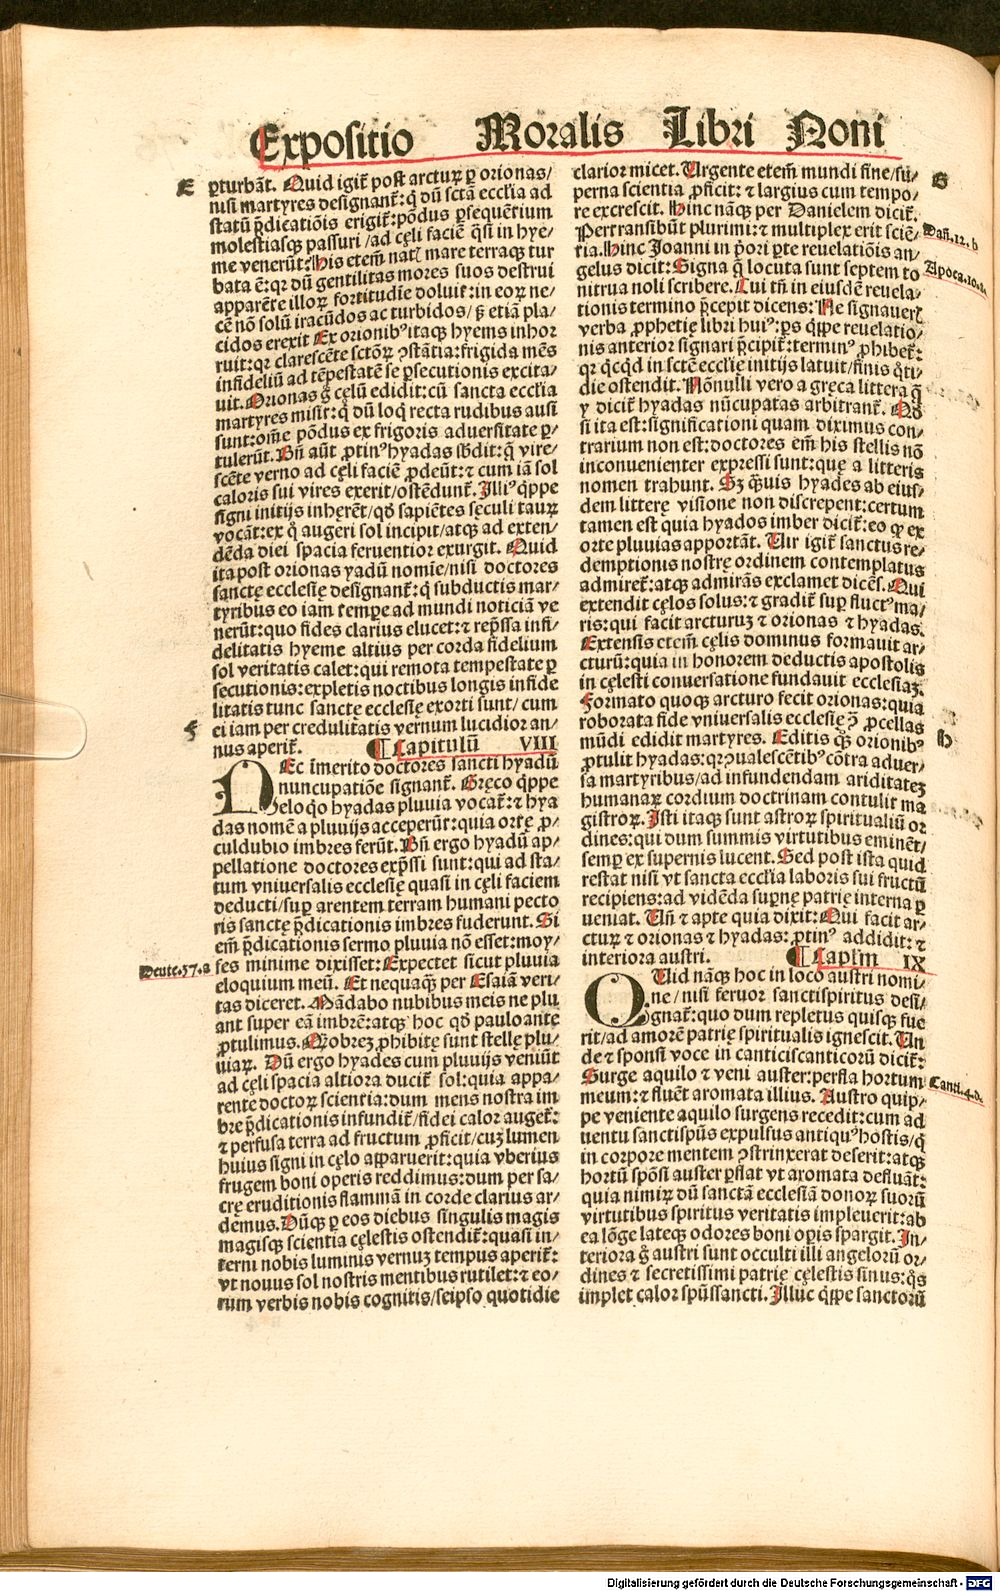 Expositio Moralis Libri Noni
E
ꝑturbāt. Quid igit᷑ post arcturꝝ ꝑ orionas/
nisi martyres designant᷑: q̇ dū sctā ecclīa ad
statū p̄dicatiōis erigit᷑: põdus ꝑsequētium
molestiasqꝫ passuri / ad cęli faciē q̄si in hye/
me venerūt: His etem̄ nat᷑ mare terraqꝫ tur
bata ē: qꝛ dū gentilitas mores suos destrui
apparēte illoꝝ fortitudīe doluit: in eoꝝ ne/
cē nō solū iracūdos ac turbidos / ꝭ etiā pla/
cidos erexit Ex orionibꝰ itaqꝫ hyems inhor
ruit: qꝛ clarescēte sctōꝝ ꝯstātia: frigida mēs
infideliū ad tēpestatē se ꝑsecutionis excita/
uit. Orionas g̊ cęlū edidit: cū sancta ecclīa
martyres misit: q̇ dū loq̇ recta rudibus ausi
sunt: om̄e pōdus ex frigoris aduersitate ꝑ/
tulerūt. Bn̄ aūt ꝓtinꝰ hyadas sbdit: q̄ vire/
scēte verno ad cęli faciē ꝓdeūt: ⁊ cum iā sol
caloris sui vires exerit / ostēdunt᷑. Illiꝰ q̇ppe
signi initijs inhęrēt / qḋ sapiētes sęculi tauꝝ
vocāt: ex q̊ augeri sol incipit / atqꝫ ad exten/
dēda diei spacia feruentior exurgit. Quid
ita post orionas yadū nomīe / nisi doctores
sanctę ecclesię designant᷑: q̇ subductis mar/
tyribus eo iam tempꝑe ad mundi noticiā ve
nerūt: quo fides clarius elucet: ⁊ rep̄ssa infi/
delitatis hyeme altius per corda fidelium
sol veritatis calet: qui remota tempestate ꝑ
secutionis: expletis noctibus longis infide
litatis tunc sanctę ecclesię exorti sunt / cum
F
ei iam per credulitatis vernum lucidior an/
nus aperit᷑. ¶ Capitulū VIII
NEc īmerito doctores sancti hyadū
nuncupatiōe signant᷑. Gręco q̇ppe
eloq̊ hyadas pluuia vocat᷑: ⁊ hya
das nomē a pluuijs acceperūt: quia ortę ꝓ/
culdubio imbres ferūt. Bn̄ ergo hyadū ap/
pellatione doctores exp̄ssi sunt: qui ad sta/
tum vniuersalis ecclesię quasi in cęli faciem
deducti / suꝑ arentem terram humani pecto
ris sanctę p̄dicationis imbres fuderunt. Si
em̄ p̄dicationis sermo pluuia nō esset: moy/
Deute.37.a
ses minime dixisset: Expectet sicut pluuia
eloquium meū. Et nequaq̄ꝫ per Esaiā veri/
tas diceret. Mādabo nubibus meis ne plu
ant super eā imbrē: atqꝫ hoc qḋ pauloante
ꝓtulimus. Mobrez ꝓhibitę sunt stellę plu/
uiaꝝ. Dū ergo hyades cum pluuijs veniūt
ad cęli spacia altiora ducit᷑ sol: quia appa/
rente doctoꝝ scientia: dum mens nostra im
bre p̄dicationis infundit᷑ / fidei calor auget᷑:
⁊ perfusa terra ad fructum ꝓficit / cuꝫ lumen
huius signi in cęlo aꝑparuerit: quia vberius
frugem boni operis reddimus: dum per sa/
crę eruditionis flammā in corde clarius ar/
demus. Dūqꝫ ꝑ eos diebus singulis magis
magisqꝫ scientia cęlestis ostendit᷑: quasi in/
terni nobis luminis vernuꝫ tempus aperit᷑:
vt nouus sol nostris mentibus rutilet: ⁊ eo/
rum verbis nobis cognitis / seipso quotidie
clarior micet. Urgente etem̄ mundi fine / su/
G
perna scientia ꝓficit: ⁊ largius cum tempo/
re excrescit. Hinc nāqꝫ per Danielem dicit᷑.
Pertransibūt plurimi: ⁊ multiplex erit sciē/
Dañ.12.b
tia. Hinc Joanni in p̄ori ꝑte reuelatiōis an/
gelus dicit: Signa q̄ locuta sunt septem to
Apoca.10.a
nitrua noli scribere. Cui tn̄ in eiusdē reuela/
tionis termino p̄cepit dicens: Ne signauerꝭ
verba ꝓphetię libri huiꝰ: ꝑs q̇ppe reuelatio/
nis anterior signari p̄cipit᷑: terminꝰ ꝓhibet᷑:
qꝛ q̇cq̇d in sctę ecclię initijs latuit / finis q̊ti/
die ostendit. Nōnulli vero a gręca littera q̄
y dicit᷑ hyadas nūcupatas arbitrant᷑. Qḋ
si ita est: significationi quam diximus con/
trarium non est: doctores em̄ his stellis nō
inconuenienter expressi sunt: quę a litteris
nomen trahunt. Sꝫ q̄uis hyades ab eius/
dem litterę visione non discrepent: certum
tamen est quia hyados imber dicit᷑: eo ꝙ ex
orte pluuias apportāt. Uir igit᷑ sanctus re/
demptionis nostrę ordinem contemplatus
admiret᷑: atqꝫ admirās exclamet dicēs. Qui
extendit cęlos solus: ⁊ gradit᷑ suꝑ fluctꝰ ma/
ris: qui facit arcturuꝫ ⁊ orionas ⁊ hyadas.
Extensis etem̄ cęlis dominus formauit ar/
cturū: quia in honorem deductis apostolis
in cęlesti conuersatione fundauit ecclesiaꝫ.
Formato quoqꝫ arcturo fecit orionas: quia
roborata fide vniuersalis ecclesię ꝯ̄ ꝓcellas
H
mūdi edidit martyres. Editis qꝫ orionibꝰ
ꝓtulit hyadas: qꝛ ꝯualescētibꝰ cōtra aduer/
sa martyribus / ad infundendam ariditateꝫ
humanaꝝ cordium doctrinam contulit ma
gistroꝝ. Isti itaqꝫ sunt astroꝝ spiritualiū or
dines: qui dum summis virtutibus eminēt/
semꝑ ex supernis lucent. Sed post ista quid
restat nisi vt sancta ecclīa laboris sui fructū
recipiens: ad vidēda suꝑnę patrię interna ꝑ
ueniat. Un̄ ⁊ apte quia dixit: Qui facit ar/
cturꝝ ⁊ orionas ⁊ hyadas: ꝓtinꝰ addidit: ⁊
interiora austri. ¶ Capl̄m IX
QUid nāqꝫ hoc in loco austri nomi/
ne / nisi feruor sanctispiritus desi/
gnat᷑: quo dum repletus quisqꝫ fue
rit / ad amorē patrię spiritualis ignescit. Un
de ⁊ sponsi voce in canticiscanticorū dicit᷑:
Surge aquilo ⁊ veni auster: perfla hortum
Canti.4.d
meum: ⁊ fluēt aromata illius. Austro quip/
pe veniente aquilo surgens recedit: cum ad
uentu sanctispūs expulsus antiquꝰ hostis / q̇
in corpore mentem ꝯstrinxerat deserit: atqꝫ
hortū spōsi auster ꝑflat vt aromata defluāt:
quia nimiꝝ dū sanctā ecclesiā donoꝝ suorū
virtutibus spiritus veritatis impleuerit: ab
ea lōge lateqꝫ odores boni oꝑis spargit. In/
teriora g̊ austri sunt occulti illi angelorū or/
dines ⁊ secretissimi patrię cęlestis sinus: q̊s
implet calor spūssancti. Illuc q̇ppe sanctorū
Digitalisierung gefördert durch die Deutsche Forschungsgemeinschaft - DFG